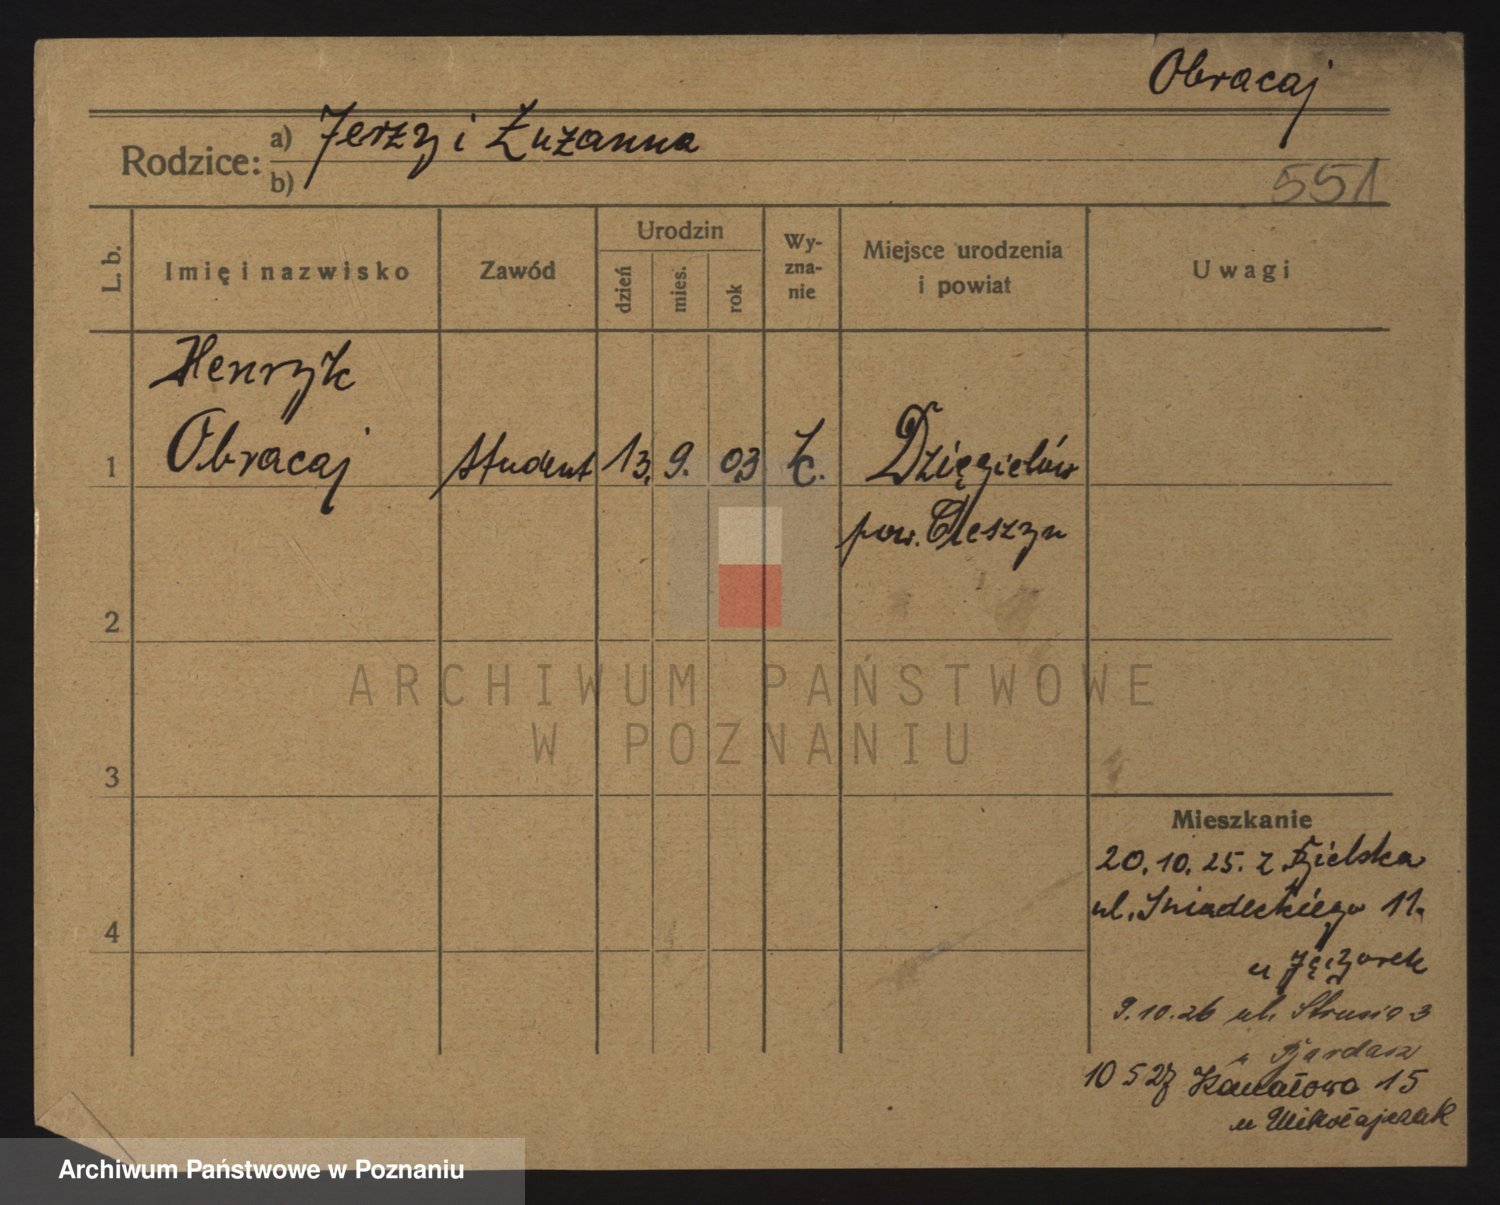 Obracaj
Rodzice: a) Jerzy i Zuzanna
b)
551
L. b. Imię i nazwisko Zawód Urodzin dzień mies. rok Wy-zna-nie Miejsce urodzenia i powiat Uwagi
Henryk
1 Obracaj student 13. 9. 03 Dzięgielów
pow. Cieszyn
2
ARCHIWUM PAŃSTWOWE
W POZNANIU
3
Mieszkanie
20.10.25. z Bielska
4 ul. Śniadeckiego 11.
u
9.10.26 ul. Strusia 3
u Bardasz
10 5 27 Kanałowa 15
u Mikołajczak
Archiwum Państwowe w Poznaniu